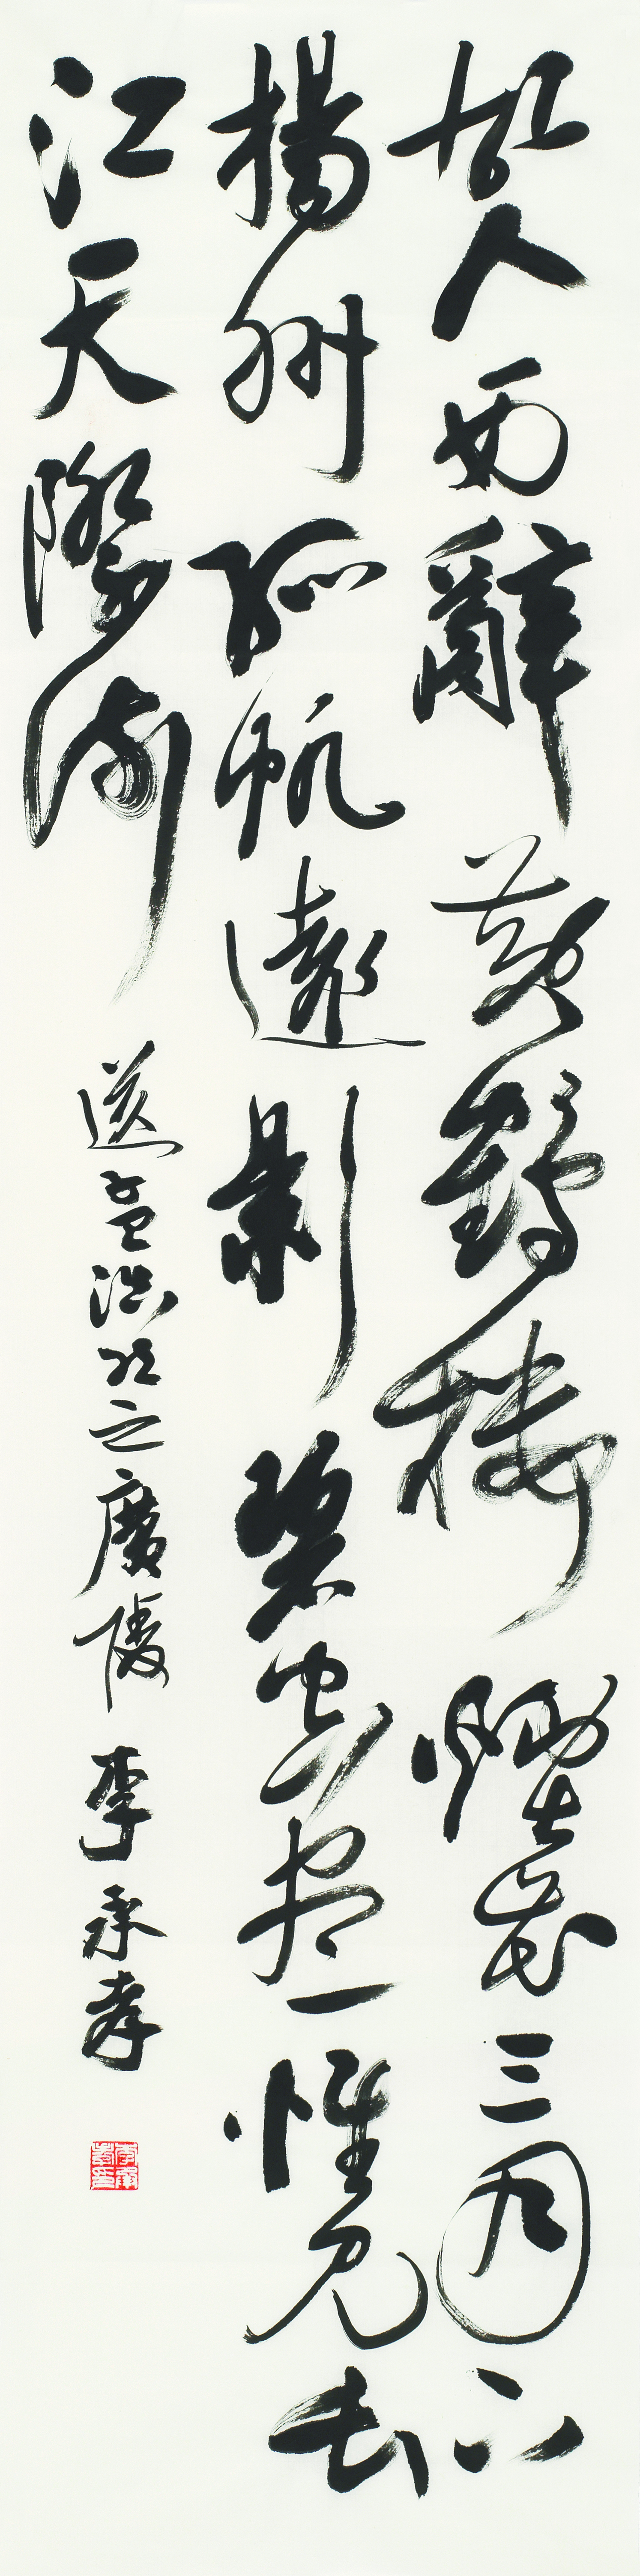 故人西辭黃鶴樓煙花三月下
揚州孤帆遠影碧空盡惟見長
江天際流
送孟浩然之廣陵 李永孝